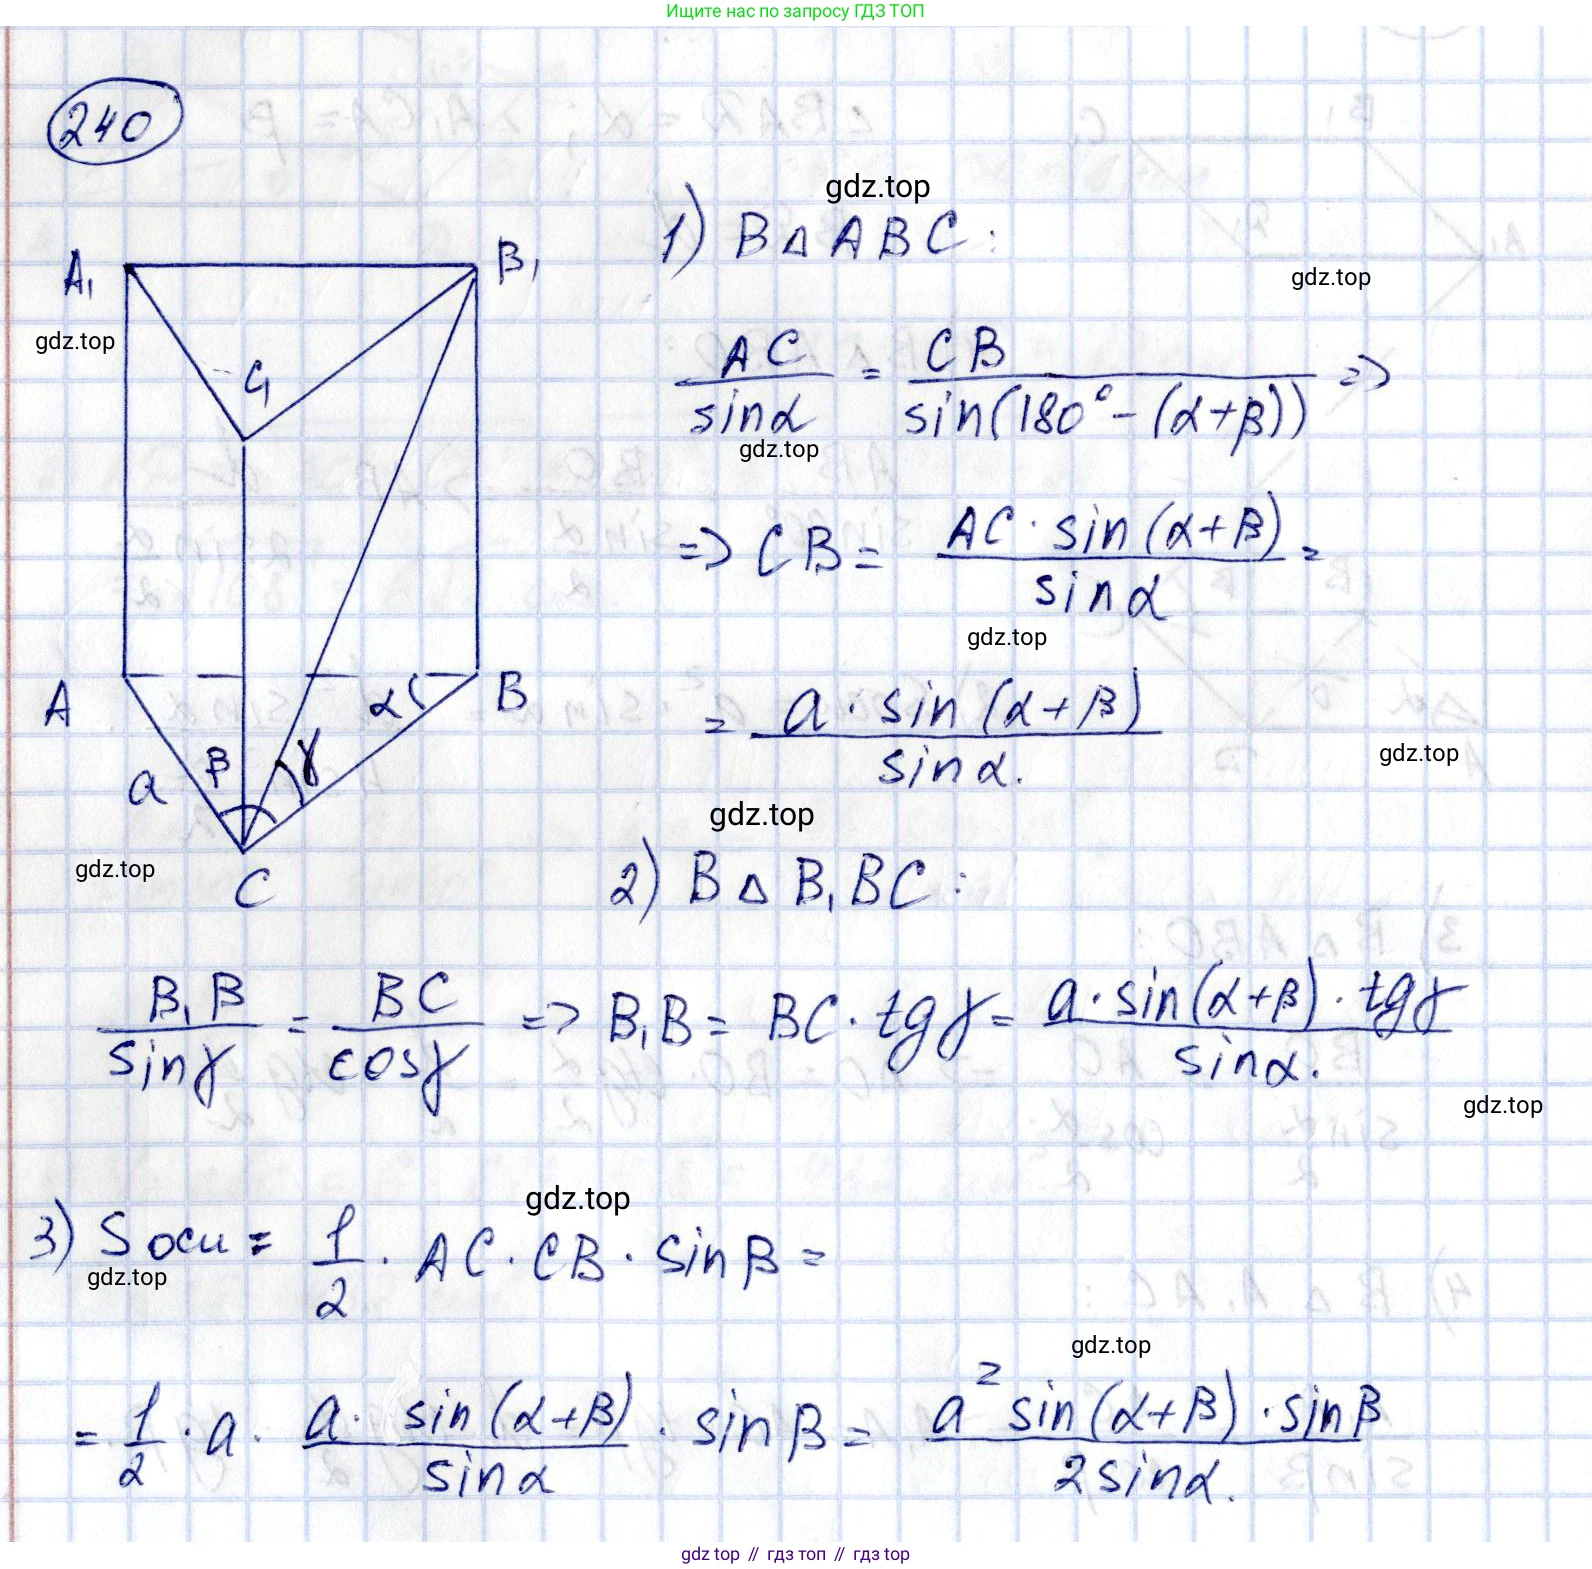 Ищите нас по запросу ГДЗ ТОП
240
gdz.top
1) В △ ABC:
A₁ B₁
gdz.top
gdz.top
C₁
AC/sinα = CB/sin(180° - (α+β)) =>
gdz.top
=> CB = AC · sin(α+β)/sinα =
gdz.top
A B
α
= a · sin(α+β)/sinα.
β γ
gdz.top
a
gdz.top
gdz.top
C
2) В △ B₁BC:
B₁B/sinγ = BC/cosγ => B₁B = BC · tgγ = a · sin(α+β) · tgγ/sinα.
gdz.top
gdz.top
3) Sосн = 1/2 · AC · CB · sinβ =
gdz.top
gdz.top
= 1/2 · a · a · sin(α+β)/sinα · sinβ = a² sin(α+β) · sinβ/2sinα.
gdz top // гдз топ // гдз top